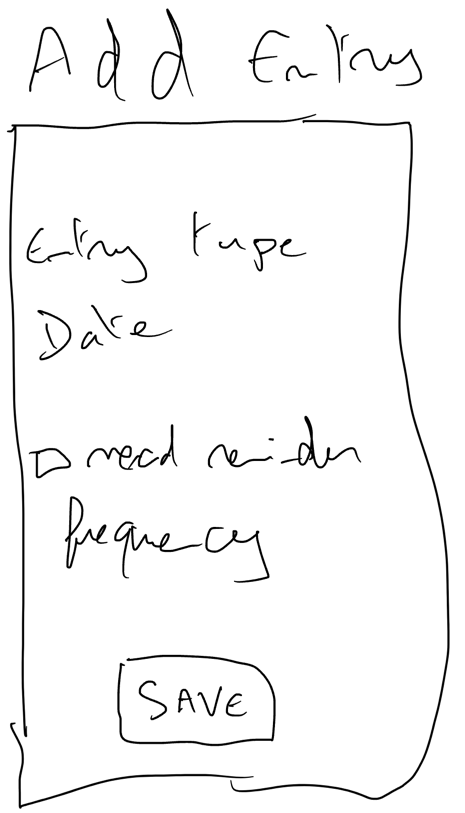 Add Entry
Entry type
Date
need reminder
frequency
SAVE